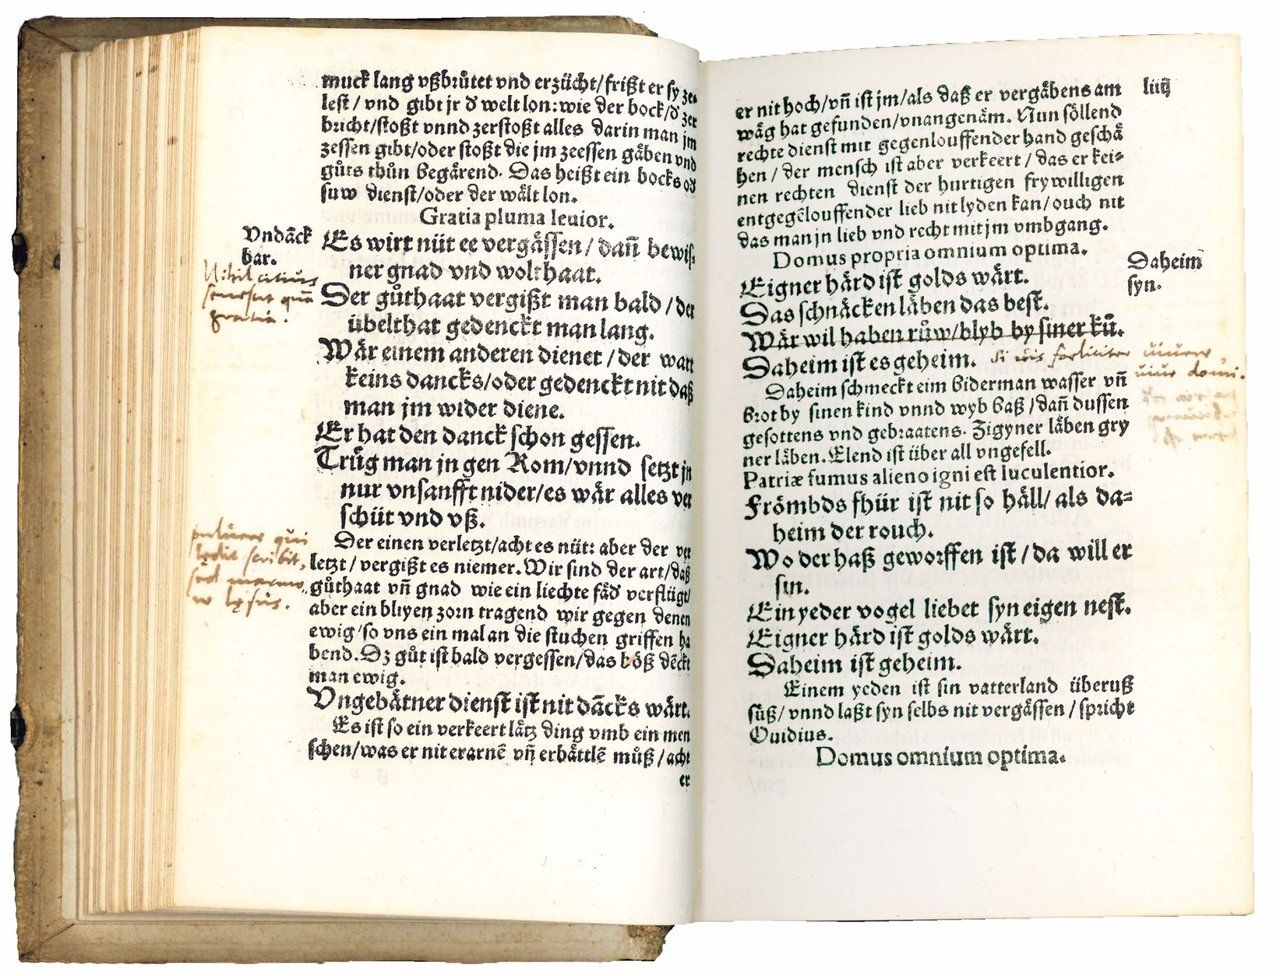 muck lang vßbrůtet vnd erzücht/frißt er sy ze⸗
lest/ vnd gibt jr d̕ welt lon: wie der bock/d̕ zer
bricht/stoßt vnnd zerstoßt alles darin man jm
zessen gibt/oder stoßt die jm zeessen gäben vnd
gůts thůn begärend. Das heißt ein bocks od̕
suw dienst/oder der wält lon.
Gratia pluma leuior.
Vndāck
bar.
Es wirt nüt ee vergässen/ dañ bewis⸗
ner gnad vnd wolthaat.
Nihil citius
senescit quā
gratia.
Der gůthaat vergißt man bald/ der
übelthat gedenckt man lang.
Wär einem anderen dienet/ der wart
keins dancks/oder gedenckt nit daß
man jm wider diene.
Er hat den danck schon gessen.
Trůg man jn gen Rom/vnnd setzt jn
nur vnsanfft nider/es wär alles ver
schüt vnd vß.
puluere qui
ledit scribit,
sed marmo⸗
re lęsus.
Der einen verletzt/acht es nüt: aber der ver
letzt/ vergißt es niemer. Wir sind der art/daß
gůthaat vñ gnad wie ein liechte fäd̕ verflügt/
aber ein blyen zorn tragend wir gegen denen
ewig/so vns ein mal an die stuchen griffen ha
bend. Dz gůt ist bald vergessen/das böß dēckt
man ewig.
Vngebätner dienst ist nit dācks wärt.
Es ist so ein verkeert lätz ding vmb ein men
schen/was er nit erarnē vñ erbättlē můß/acht
er
liiij
er nit hoch/vñ ist jm/als daß er vergäbens am
wäg hat gefunden/vnangenäm. Nun söllend
rechte dienst mit gegenlouffender hand geschā
hen/ der mensch ist aber verkeert/das er kei⸗
nen rechten dienst der hurtigen frywilligen
entgegēlouffender lieb nit lyden kan/ouch nit
das man jn lieb vnd recht mit jm vmbgang.
Domus propria omnium optima.
Daheim
syn.
Eigner härd ist golds wärt.
Das schnäcken läben das best.
Wär wil haben růw/blyb by siner ků.
Daheim ist es geheim.
Si vis foeliciter viuere,
viue domi.
Daheim schmeckt eim biderman wasser vñ
brot by sinen kind vnnd wyb baß/dañ dussen
gesottens vnd gebraatens. Zigyner läben gry
ner läben. Elend ist über all vngefell.
Patriæ fumus alieno igni est luculentior.
Frömbds fhür ist nit so häll/ als da⸗
heim der rouch.
Wo der haß geworffen ist/da will er
sin.
Ein yeder vogel liebet syn eigen nest.
Eigner härd ist golds wärt.
Daheim ist geheim.
Einem yeden ist sin vatterland überuß
süß/vnnd laßt syn selbs nit vergässen/spricht
Ouidius.
Domus omnium optima.